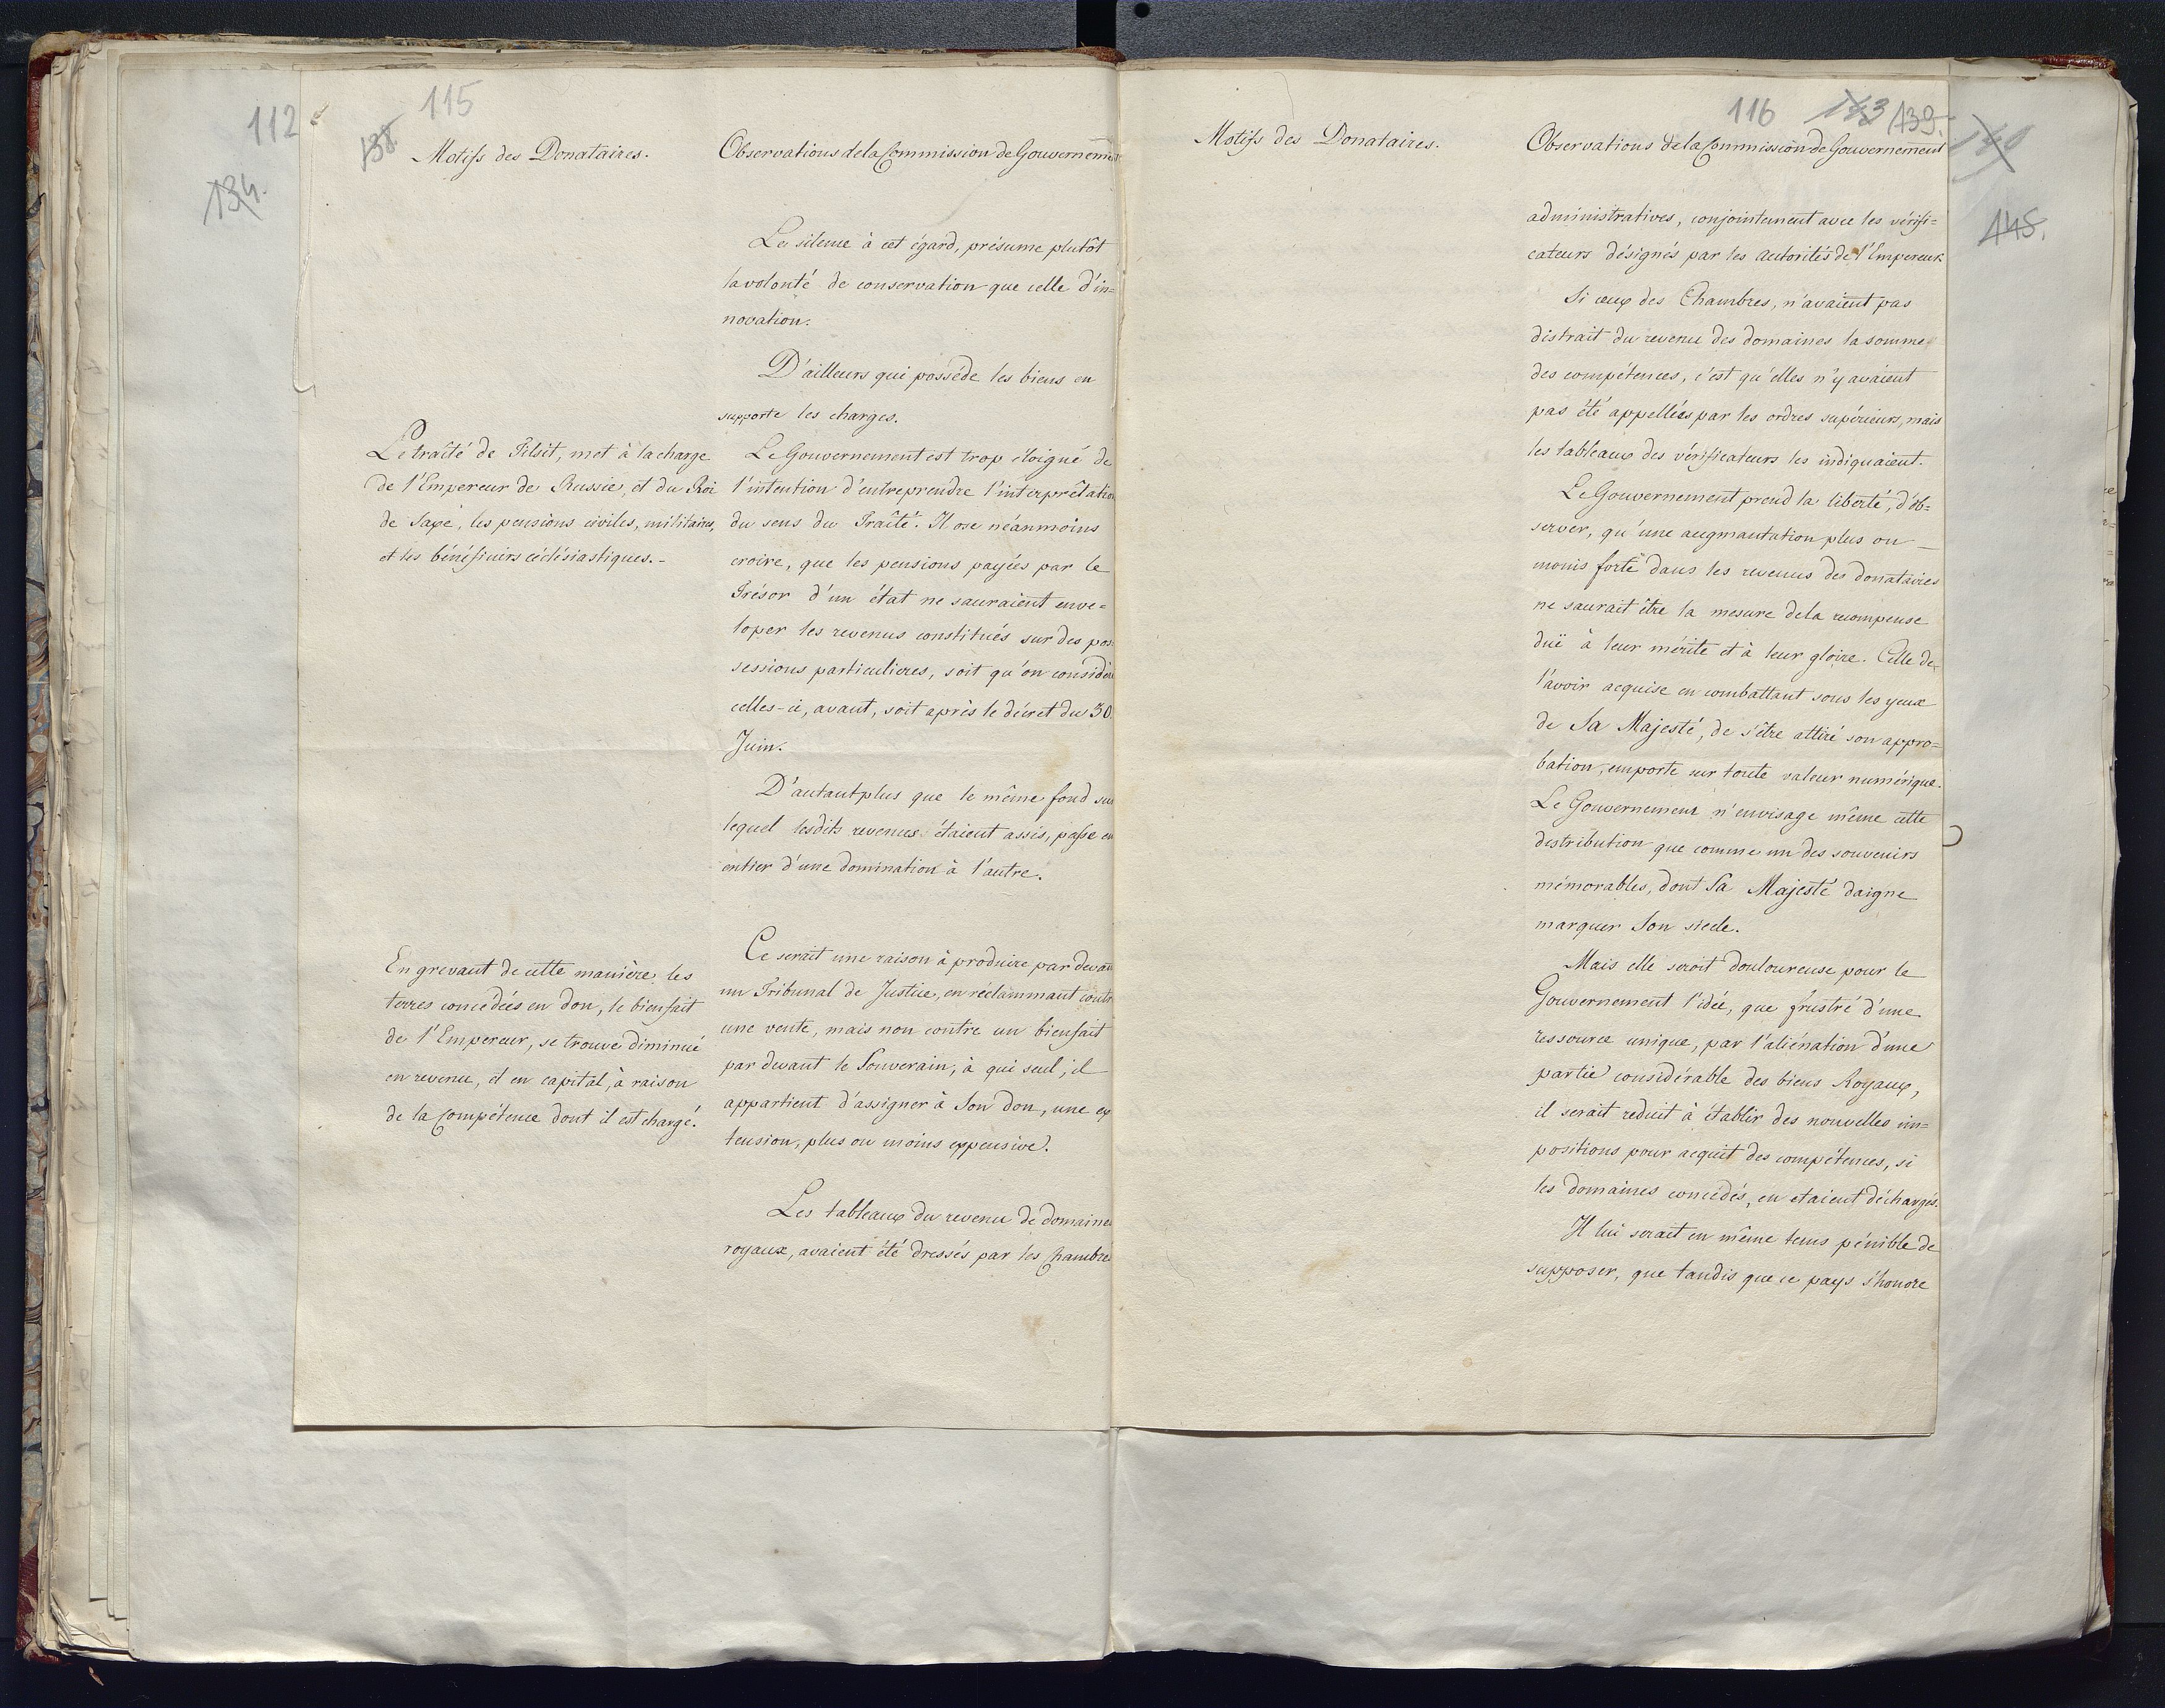 112
115
138.
134.
Motifs des Donataires.
Observations de la Commission de Gouvernement
Le silence à cet égard, présume plutôt
la volonté de conservation que celle d'in=
novation.
D'ailleurs qui possède les biens en
supporte les charges.
Le traîté de Tilsit, met à la charge
de l'Empereur de Russie, et du Roi
de Saxe, les pensions civiles, militaires,
et les bénéficiers écclésiastiques.-
Le Gouvernement est trop éloigné de
l'intention d'entreprendre l'interprêtation
du sens du Traîté. Il ose néanmoins
croire, que les pensions payées par le
Trésor d'un état ne sauraient enve=
loper les revenus constitués sur des pos
sessions particulieres, soit qu'on considère
celles-ci, avant, soit après le décret du 30
Juin.
D'autant plus que le même fond sur
lequel lesdits revenus étaient assis, passe en
entier d'une domination à l'autre.
En grevant de cette manière les
terres concedées en don, le bienfait
de l'Empereur, se trouve diminué
en revenu, et en capital, à raison
de la Compétence dont il est chargé.
Ce serait une raison à produire par devant
un Tribunal de Justice, en réclammant contre
une vente, mais non contre un bienfait
par devant le Souverain, à qui seul, il
appartient d'assigner à Son don, une ex
tension, plus ou moins expensive.
Les tableaux du revenu de domaines
royaux, avaient été dressés par les Chambres
116
143
139.
140
145.
Motifs des Donataires.
Observations de la Commission de Gouvernement
administratives, conjointement avec les vérifi=
cateurs désignés par les autorités de l'Empereur.
Si ceux des Chambres, n'avaient pas
distrait du revenu des domaines la somme
des compétences, c'est qu'elles n'y avaient
pas été appellées par les ordres supérieurs, mais
les tableaux des vérificateurs les indiquaient.
Le Gouvernement prend la liberté, d'ob=
server, qu'une augmantation plus ou
moins forte dans les revenus des donataires
ne saurait être la mesure de la recompense
duë à leur mérite et à leur gloire. Celle de
l'avoir acquise en combattant sous les yeux
de Sa Majesté, de s'être attiré son appro=
bation, emporte sur toute valeur numérique.
Le Gouvernement n'envisage même cette
distribution que comme un des souvenirs
mémorables, dont Sa Majesté daigne
marquer Son siecle.
Mais elle seroit douloureuse pour le
Gouvernement l'idée, que frustré d'une
ressource unique, par l'aliénation d'une
partie considérable des biens Royaux,
il serait reduit à établir des nouvelles im=
positions pour acquit des compétences, si
les domaines concédés, en etaient déchargés.
Il lui serait en même tems pénible de
supposer, que tandis que ce pays s'honore